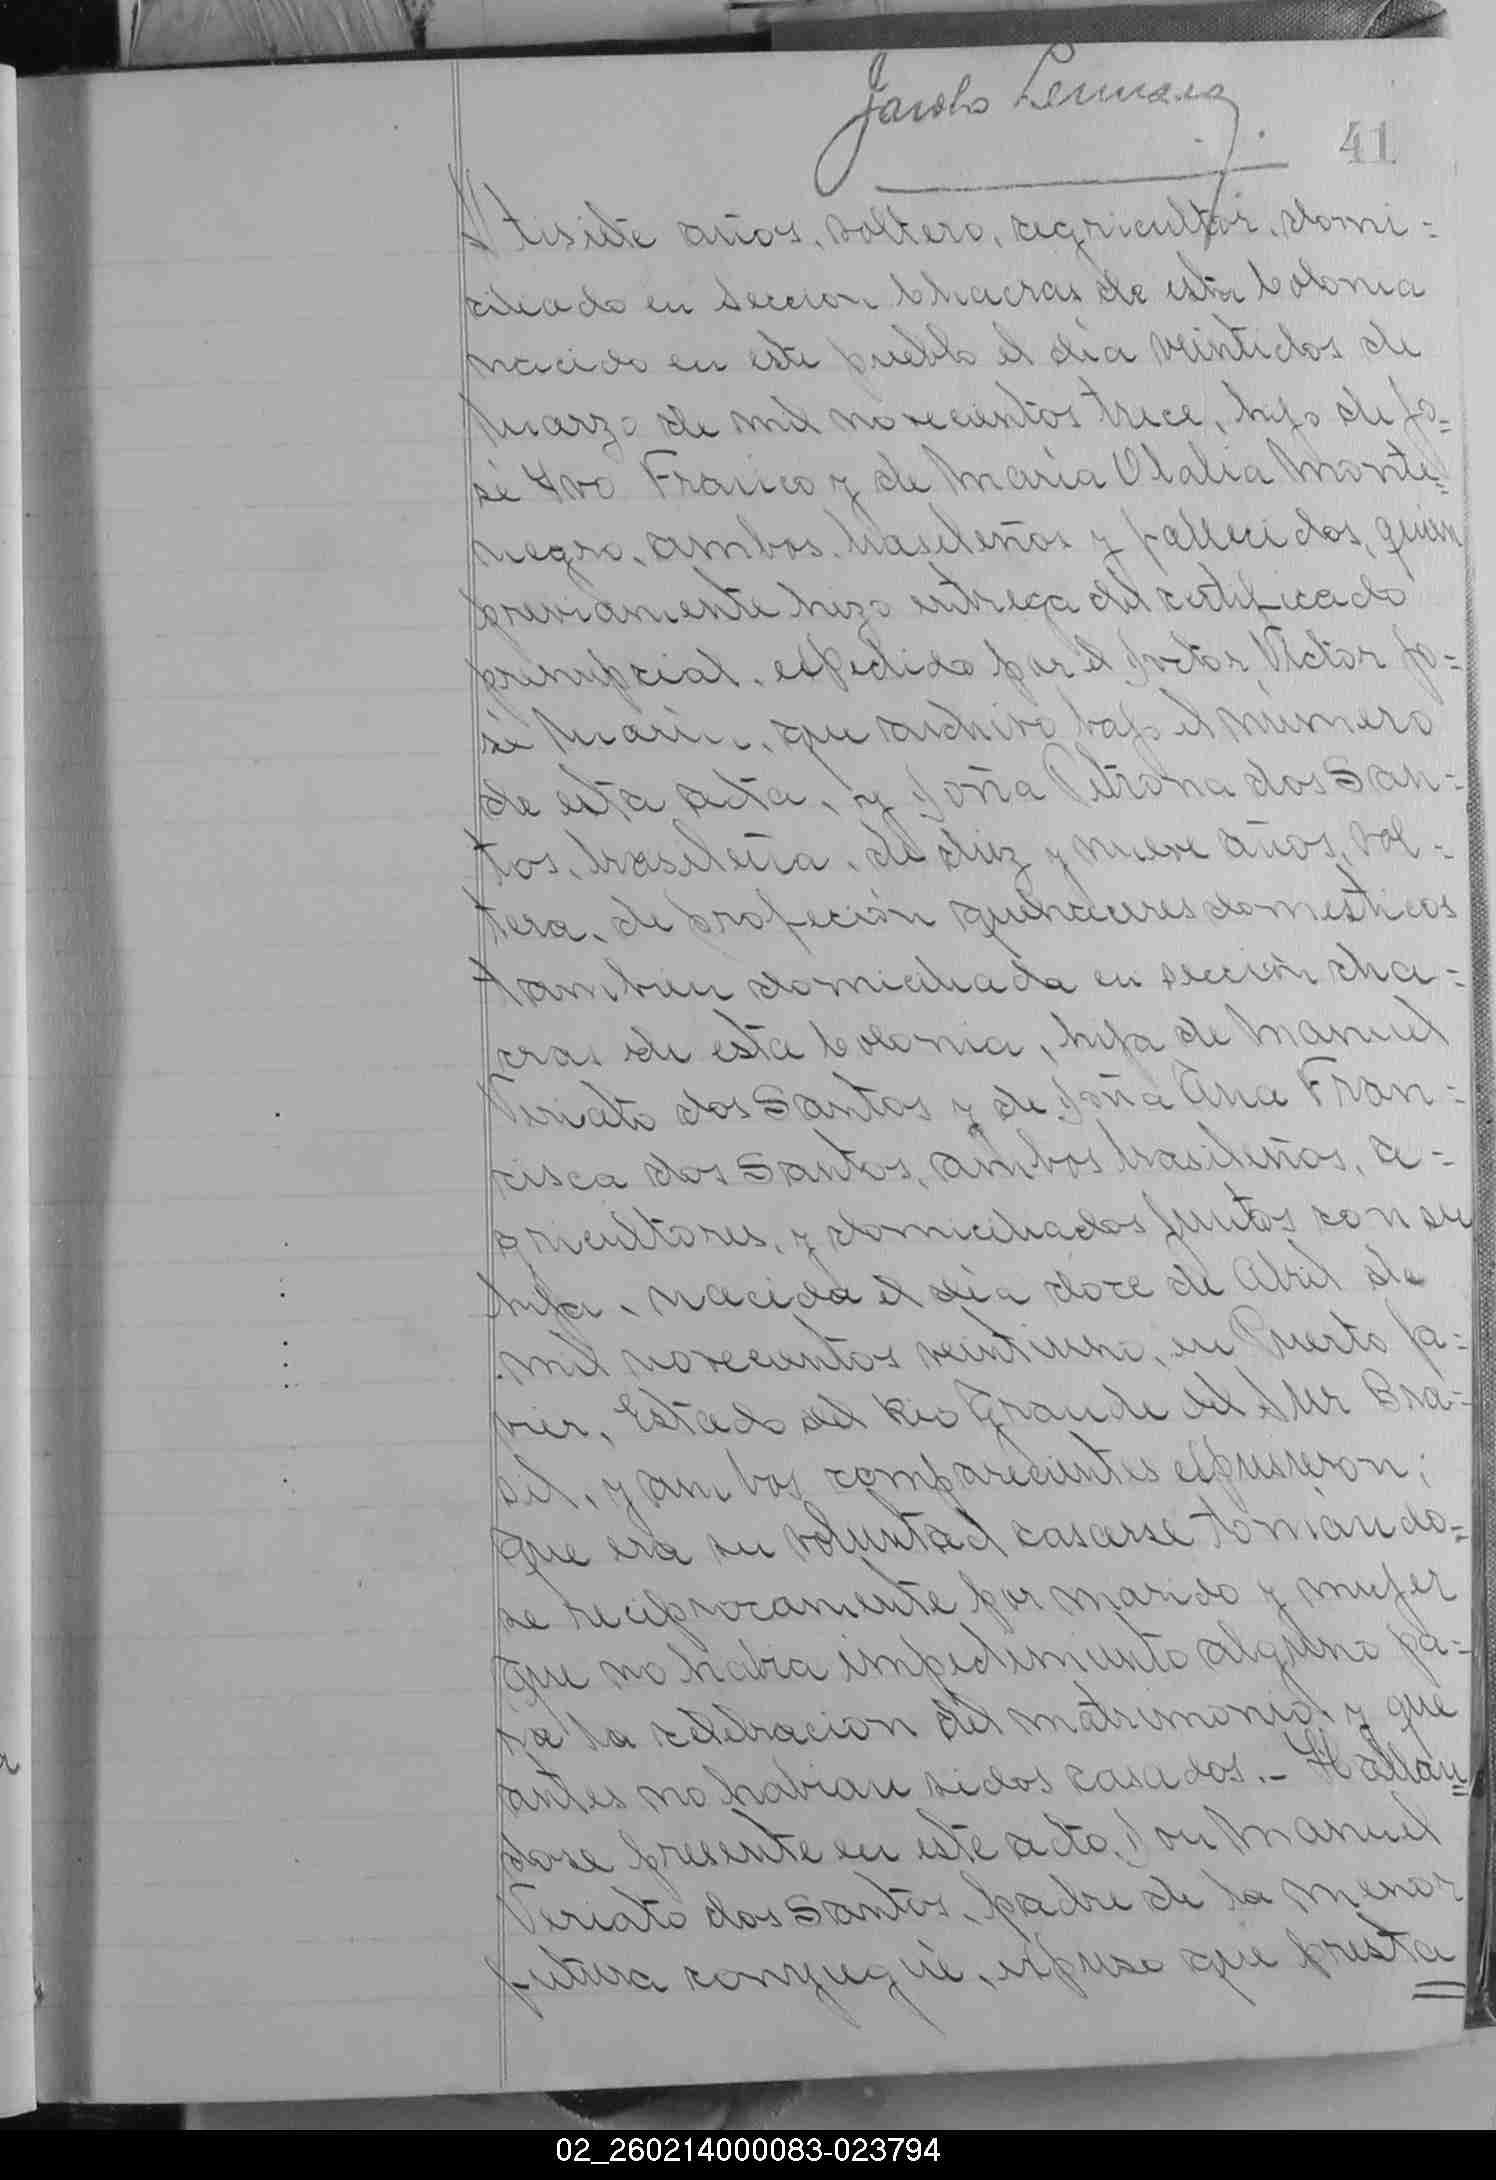 Jacobo
41
tisiete años, soltero, agricultor, domi=
ciliado en Seccion Chacras de esta Colonia
nacido en este pueblo el día veintidos de
Marzo de mil novecientos trece, hijo de Jo=
sé Ivo Franco y de María Olalia Monte=
negro, ambos brasileños y fallecidos, quien
previamente hizo entrega del certificado
prenupcial, espedido por el Doctor Víctor Jo=
sé Marín, que archivo bajo el número
de esta acta, y Doña Petrona dos San=
tos, brasileña, de diez y nueve años, sol=
tera, de profeción quehaceres domésticos
tambien domiciliada en sección cha=
cras de esta Colonia, hija de Manuel
Veriato dos Santos y de Doña Ana Fran=
cisca dos Santos, ambos brasileños, a=
gricultores, y domiciliados juntos con su
hija, nacida el día doce de Abril de
mil novecientos veintiuno, en Puerto Ja=
vier, Estado del Rio Grande del Sur Bra=
sil, y ambos comparecientes espusieron;
que era su voluntad casarse tomándo=
se reciprocamente por marido y mujer
que no habia impedimento alguno pa=
ra la celebracion del matrimonio y que
antes no habian sidos casados.- Hallan=
dose presente en este acto, Don Manuel
Veriato dos Santos, padre de la menor
futura conyugué, espuso que presta
02_260214000083-023794